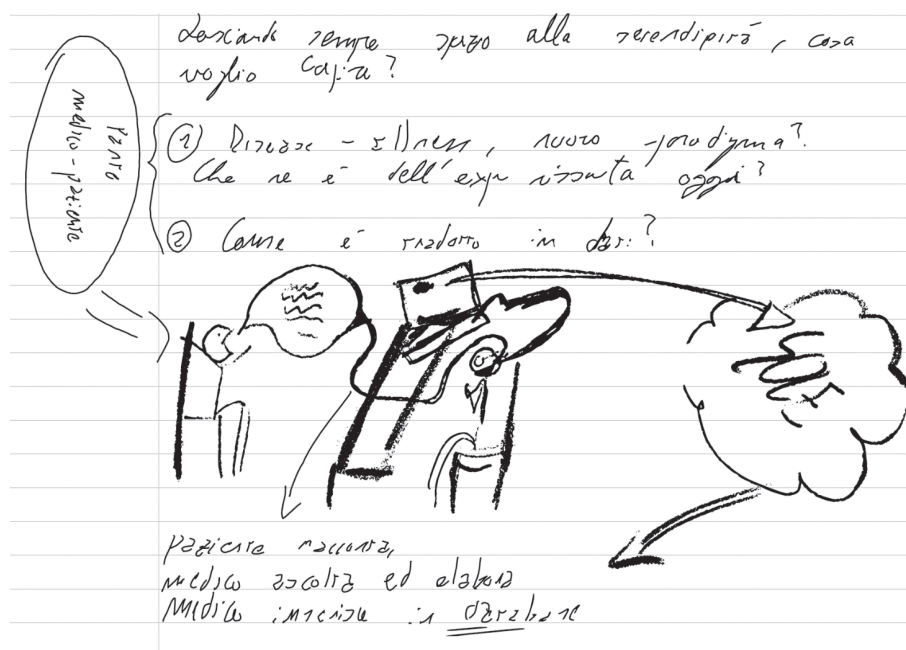 Lasciando sempre spazio alla serendipità, cosa
voglio capire?
Parte
medico-paziente
① Disease - illness, nuovo paradigma?
Che ne è dell'exp vissuta oggi?
② Come è tradotto in dati?
paziente racconta,
medico ascolta ed elabora
medico inserisce in database